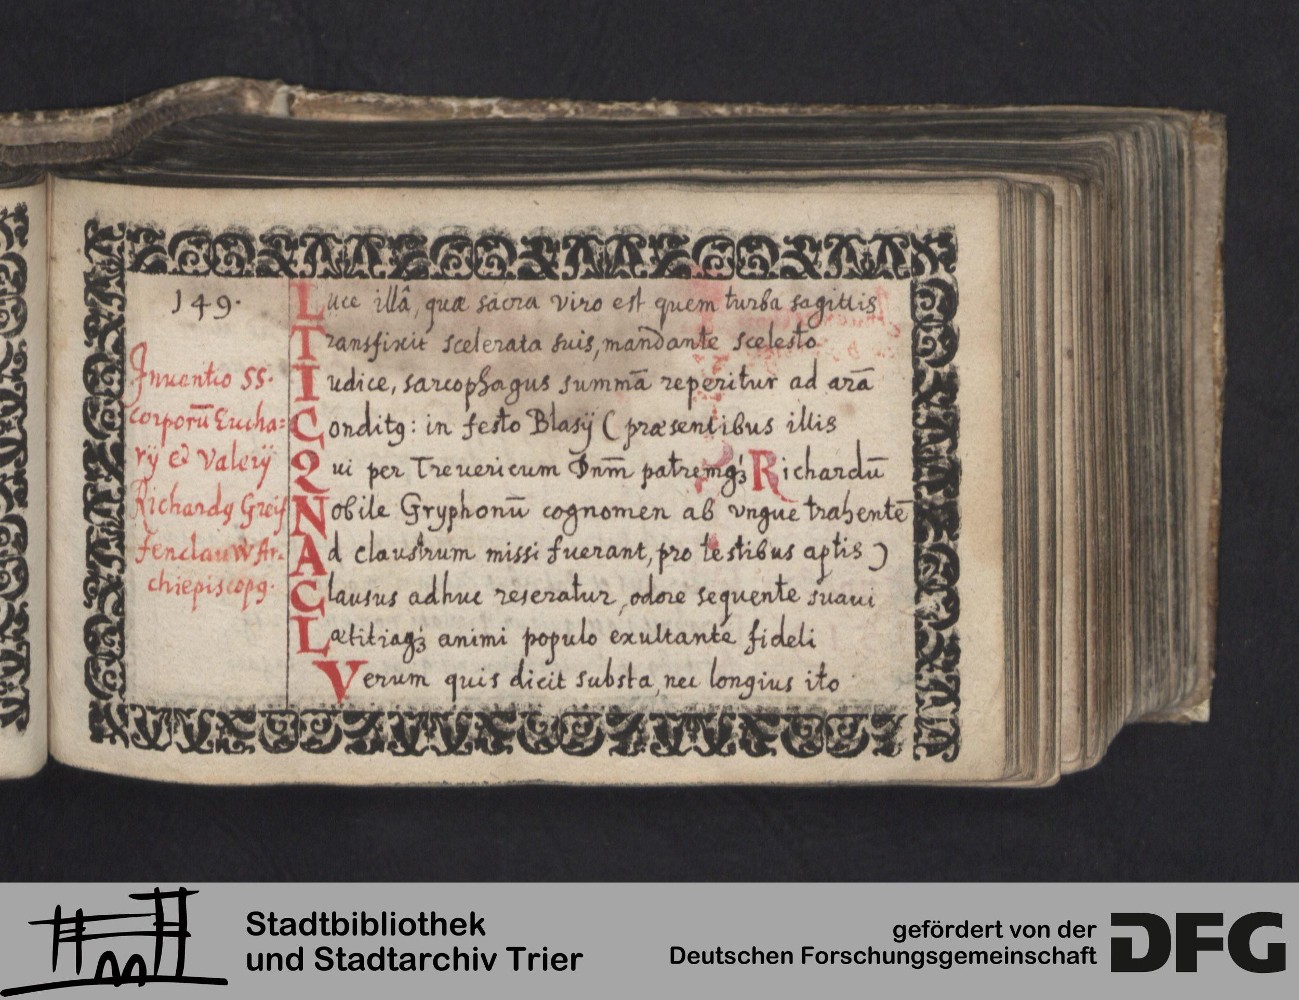 149.
Inuentio SS.
corporū Eucha=
rÿ & Valerÿ
Richardꝯ Greif
fenclau W Ar.
chiepiscopꝯ.
Luce illâ, quæ sacra viro est quem turba sagittis
Transfixit scelerata suis, mandante scelesto
Iudice, sarcophagus summā reperitur ad arā
Conditꝯ: in festo Blasÿ ( præsentibus illis
Qui per Treuericum Dnm̄ patremqʒ Richardū
Nobile Gryphonū cognomen ab vngue trahentē
Ad claustrum missi fuerant, pro testibus aptis )
Clausus adhuc reseratur, odore sequente suaui
Lætitiaqʒ animi populo exultante fideli
Verum quis dicit substa, nec longius ito
Stadtbibliothek
und Stadtarchiv Trier
gefördert von der
Deutschen Forschungsgemeinschaft
DFG